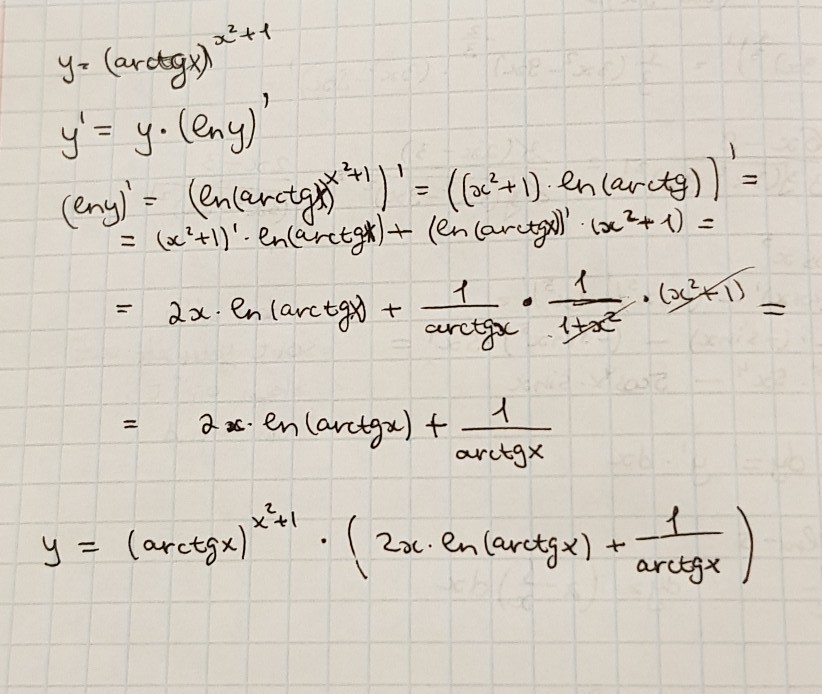 y = (arctgx)^{x²+1}
y' = y · (ln y)'
(ln y)' = (ln(arctgx)^{x²+1})' = ((x²+1) · ln(arctg))' =
= (x²+1)' · ln(arctgx) + (ln(arctgx))' · (x²+1) =
= 2x · ln(arctgx) + 1/arctgx · 1/(1+x²) · (x²+1) =
= 2x · ln(arctgx) + 1/arctgx
y = (arctgx)^{x²+1} · (2x · ln(arctgx) + 1/arctgx)